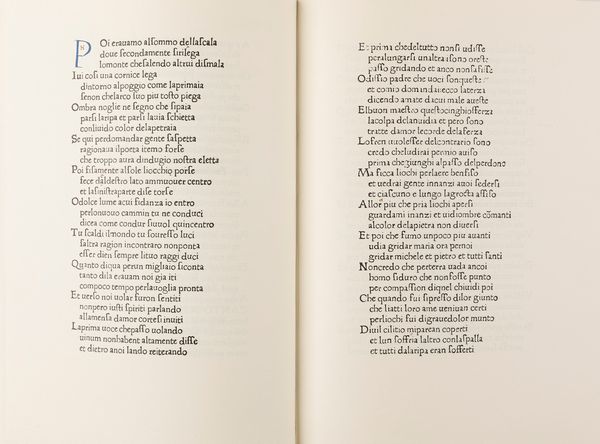 POi erauamo alsommo dellascala
doue secondamente sirilega
lomonte chesalendo altrui dismala
Iui cosi una cornice lega
dintorno alpoggio come laprimaia
senon chelarco suo piu tosto piega
Ombra noglie ne segno che sipaia
parsi laripa et parsi lauia schietta
conliuido color delapetraia
Se qui perdomandar gente saspetta
ragionaua ilpoeta itemo forse
che troppo aura dindugio nostra eletta
Poi fisamente alsole liocchio porse
fece daldestro lato ammuouer centro
et lasinistraparte dise torse
Odolce lume acui fidanza io entro
perlonuouo cammin tu ne conduci
dicea come condur siuuol quincentro
Tu scaldi ilmondo tu souresso luci
saltra ragion incontraro nonponta
esser dien sempre lituo raggi duci
Quanto diqua perun migliaio siconta
tanto dila erauam noi gia iti
compoco tempo perlauoglia pronta
Et uerso noi uolar furon sentiti
nonpero iusti spiriti parlando
allamensa damor cortesi inuiti
Laprima uoce chepasso uolando
uinum nonhabent altamente disse
et dietro anoi lando reiterando
Et prima chedeltutto nonsi udisse
peralungarsi unaltra isono oreste
passo gridando et anco nonsafisse
Odissio padre che uoci sonqueste
et comio domandai ecco laterza
dicendo amate dacui male aueste
Elbuon maestro questocinghiosferza
lacolpa delanuidia et pero sono
tratte damor lecorde delasferza
Lofren uuolesser delcontrario sono
credo cheludirai permio auiso
prima chegiunghi alpasso delperdono
Ma ficca liochi perlaere benfiso
et uedrai gente innanzi anoi sedersi
et ciascuno e lungo lagrosta assiso
Allor piu che pria liochi apersi
guardami inanzi et uidiombre cõmanti
alcolor delapietra non diuersi
Et poi che fumo unpoco piu auanti
udia gridar maria ora pernoi
gridar michele et pietro et tutti santi
Noncredo che perterra uada ancoi
homo siduro che nonfosse punto
per compassion diquel chiuidi poi
Che quando fui sipresso dilor giunto
che liatti loro ame ueniuan certi
perliochi fui digrauedolor munto
Diuil cilitio miparean coperti
et lun soffria laltro conlaspalla
et tutti dalaripa eran sofferti